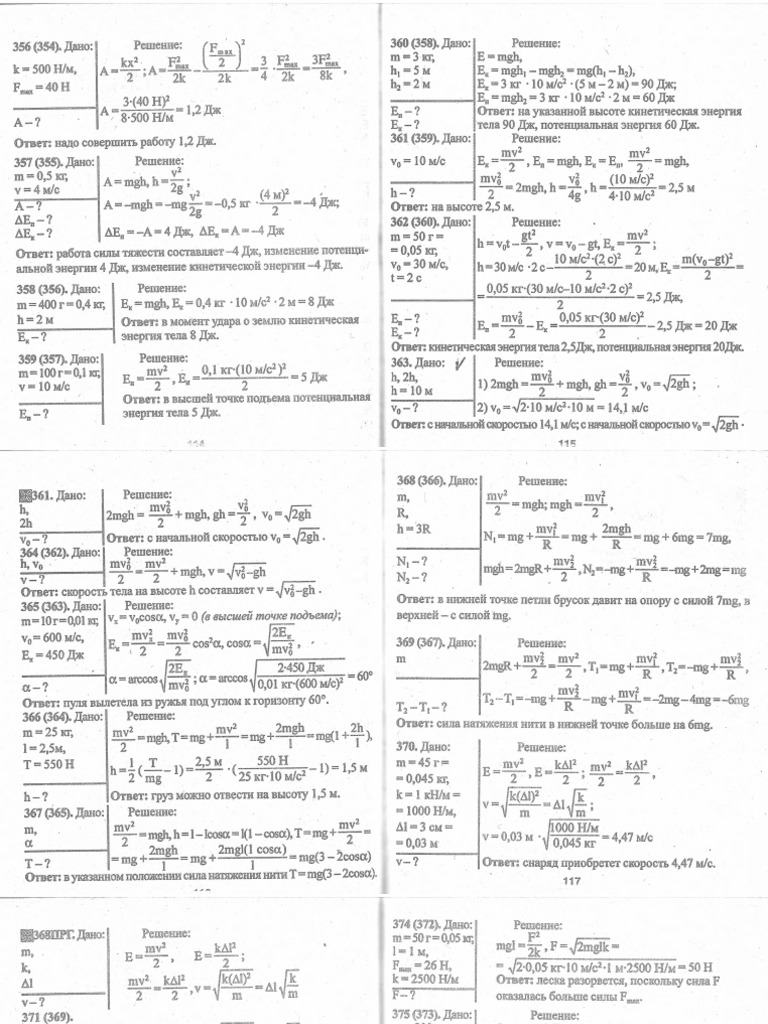 356 (354). Дано:
k = 500 Н/м,
Fmax = 40 Н
A – ?
Решение:
A = kx²/2 ; A = F²max/2k – (Fmax/2)²/2k = 3/4 · F²max/2k = 3F²max/8k ,
A = 3·(40 Н)²/8·500 Н/м = 1,2 Дж
Ответ: надо совершить работу 1,2 Дж.
357 (355). Дано:
m = 0,5 кг,
v = 4 м/с
A – ?
ΔEп – ?
ΔEк – ?
Решение:
A = mgh, h = v²/2g ;
A = –mgh = –mg v²/2g = –0,5 кг · (4 м)²/2 = –4 Дж;
ΔEп = –A = 4 Дж, ΔEк = A = –4 Дж
Ответ: работа силы тяжести составляет –4 Дж, изменение потенци-
альной энергии 4 Дж, изменение кинетической энергии –4 Дж.
358 (356). Дано:
m = 400 г = 0,4 кг,
h = 2 м
Eк – ?
Решение:
Eк = mgh, Eк = 0,4 кг · 10 м/с² · 2 м = 8 Дж
Ответ: в момент удара о землю кинетическая
энергия тела 8 Дж.
359 (357). Дано:
m = 100 г = 0,1 кг,
v = 10 м/с
Eп – ?
Решение:
Eп = mv²/2 , Eк = 0,1 кг·(10 м/с²)²/2 = 5 Дж
Ответ: в высшей точке подъема потенциальная
энергия тела 5 Дж.
360 (358). Дано:
m = 3 кг,
h₁ = 5 м
h₂ = 2 м
Eп – ?
Eк – ?
Решение:
E = mgh,
Eк = mgh₁ – mgh₂ = mg(h₁ – h₂),
Eк = 3 кг · 10 м/с² · (5 м – 2 м) = 90 Дж;
Eп = mgh₂ = 3 кг · 10 м/с² · 2 м = 60 Дж
Ответ: на указанной высоте кинетическая энергия
тела 90 Дж, потенциальная энергия 60 Дж.
361 (359). Дано:
v₀ = 10 м/с
h – ?
Решение:
Eк = mv²/2 , Eп = mgh, Eк = Eп, mv²/2 = mgh,
mv₀²/2 = 2mgh, h = v₀²/4g , h = (10 м/с)²/4·10 м/с² = 2,5 м
Ответ: на высоте 2,5 м.
362 (360). Дано:
m = 50 г =
= 0,05 кг,
v₀ = 30 м/с,
t = 2 с
Eп – ?
Eк – ?
Решение:
h = v₀t – gt²/2 , v = v₀ – gt, Eк = mv²/2 ;
h = 30 м/с · 2 с – 10 м/с²·(2 с)²/2 = 20 м, Eк = m(v₀–gt)²/2 =
= 0,05 кг·(30 м/с–10 м/с²·2 с)²/2 = 2,5 Дж,
Eп = mv₀²/2 – Eк = 0,05 кг·(30 м/с)²/2 – 2,5 Дж = 20 Дж
Ответ: кинетическая энергия тела 2,5Дж, потенциальная энергия 20Дж.
363. Дано:
h, 2h,
h = 10 м
v₀ – ?
Решение:
1) 2mgh = mv₀²/2 + mgh, gh = v₀²/2 , v₀ = √2gh ;
2) v₀ = √2·10 м/с²·10 м = 14,1 м/с
Ответ: с начальной скоростью 14,1 м/с; с начальной скоростью v₀ = √2gh .
115
361. Дано:
h,
2h
v₀ – ?
Решение:
2mgh = mv₀²/2 + mgh, gh = v₀²/2 , v₀ = √2gh
Ответ: с начальной скоростью v₀ = √2gh .
364 (362). Дано:
h, v₀
v – ?
Решение:
mv₀²/2 = mv²/2 + mgh, v = √v₀²–gh
Ответ: скорость тела на высоте h составляет v = √v₀²–gh .
365 (363). Дано:
m = 10 г = 0,01 кг;
v₀ = 600 м/с,
Eк = 450 Дж
α – ?
Решение:
vₓ = v₀cosα, vᵧ = 0 (в высшей точке подъема);
Eк = mvₓ²/2 = mv₀²/2 cos²α, cosα = √2Eк/mv₀² ,
α = arccos √2Eк/mv₀² ; α = arccos √2·450 Дж/0,01 кг·(600 м/с)² = 60°
Ответ: пуля вылетела из ружья под углом к горизонту 60°.
366 (364). Дано:
m = 25 кг,
l = 2,5м,
T = 550 Н
h – ?
Решение:
mv²/2 = mgh, T = mg + mv²/l = mg + 2mgh/l = mg(1 + 2h/l),
h = l/2 (T/mg – 1) = 2,5 м/2 · (550 Н/25 кг·10 м/с² – 1) = 1,5 м
Ответ: груз можно отвести на высоту 1,5 м.
367 (365). Дано:
m,
α
T – ?
Решение:
mv²/2 = mgh, h = l – lcosα = l(1 – cosα), T = mg + mv²/l =
= mg + 2mgh/l = mg + 2mgl(1 cosα)/l = mg(3 – 2cosα)
Ответ: в указанном положении сила натяжения нити T = mg(3 – 2cosα).
368 (366). Дано:
m,
R,
h = 3R
N₁ – ?
N₂ – ?
Решение:
mv²/2 = mgh; mgh = mv₁²/2 ,
N₁ = mg + mv₁²/R = mg + 2mgh/R = mg + 6mg = 7mg,
mgh = 2mgR + mv₂²/2 , N₂ = –mg + mv₂²/R = –mg + 2mg = mg
Ответ: в нижней точке петли брусок давит на опору с силой 7mg, в
верхней – с силой mg.
369 (367). Дано:
m
T₂ – T₁ – ?
Решение:
2mgR + mv₂²/2 = mv²/2 , T₁ = mg + mv₁²/R , T₂ = –mg + mv₂²/R ,
T₂ – T₁ = –mg + mv₂²/R – mg + mv₁²/R = –2mg – 4mg = –6mg
Ответ: сила натяжения нити в нижней точке больше на 6mg.
370. Дано:
m = 45 г =
= 0,045 кг,
k = 1 кН/м =
= 1000 Н/м,
Δl = 3 см =
= 0,03 м
v – ?
Решение:
E = mv²/2 , E = kΔl²/2 ; mv²/2 = kΔl²/2 ,
v = √k(Δl)²/m = Δl √k/m ;
v = 0,03 м · √1000 Н/м/0,045 кг = 4,47 м/с
Ответ: снаряд приобретет скорость 4,47 м/с.
117
368ПРГ. Дано:
m,
k,
Δl
v – ?
Решение:
E = mv²/2 , E = kΔl²/2 ;
mv²/2 = kΔl²/2 , v = √k(Δl)²/m = Δl √k/m
371 (369).
374 (372). Дано:
m = 50 г = 0,05 кг,
l = 1 м,
Fmax = 26 Н,
k = 2500 Н/м
F – ?
Решение:
mgl = F²/2k , F = √2mglk =
= √2·0,05 кг·10 м/с²·1 м·2500 Н/м = 50 Н
Ответ: леска разорвется, поскольку сила F
оказалась больше силы Fmax.
375 (373). Дано:
Решение: